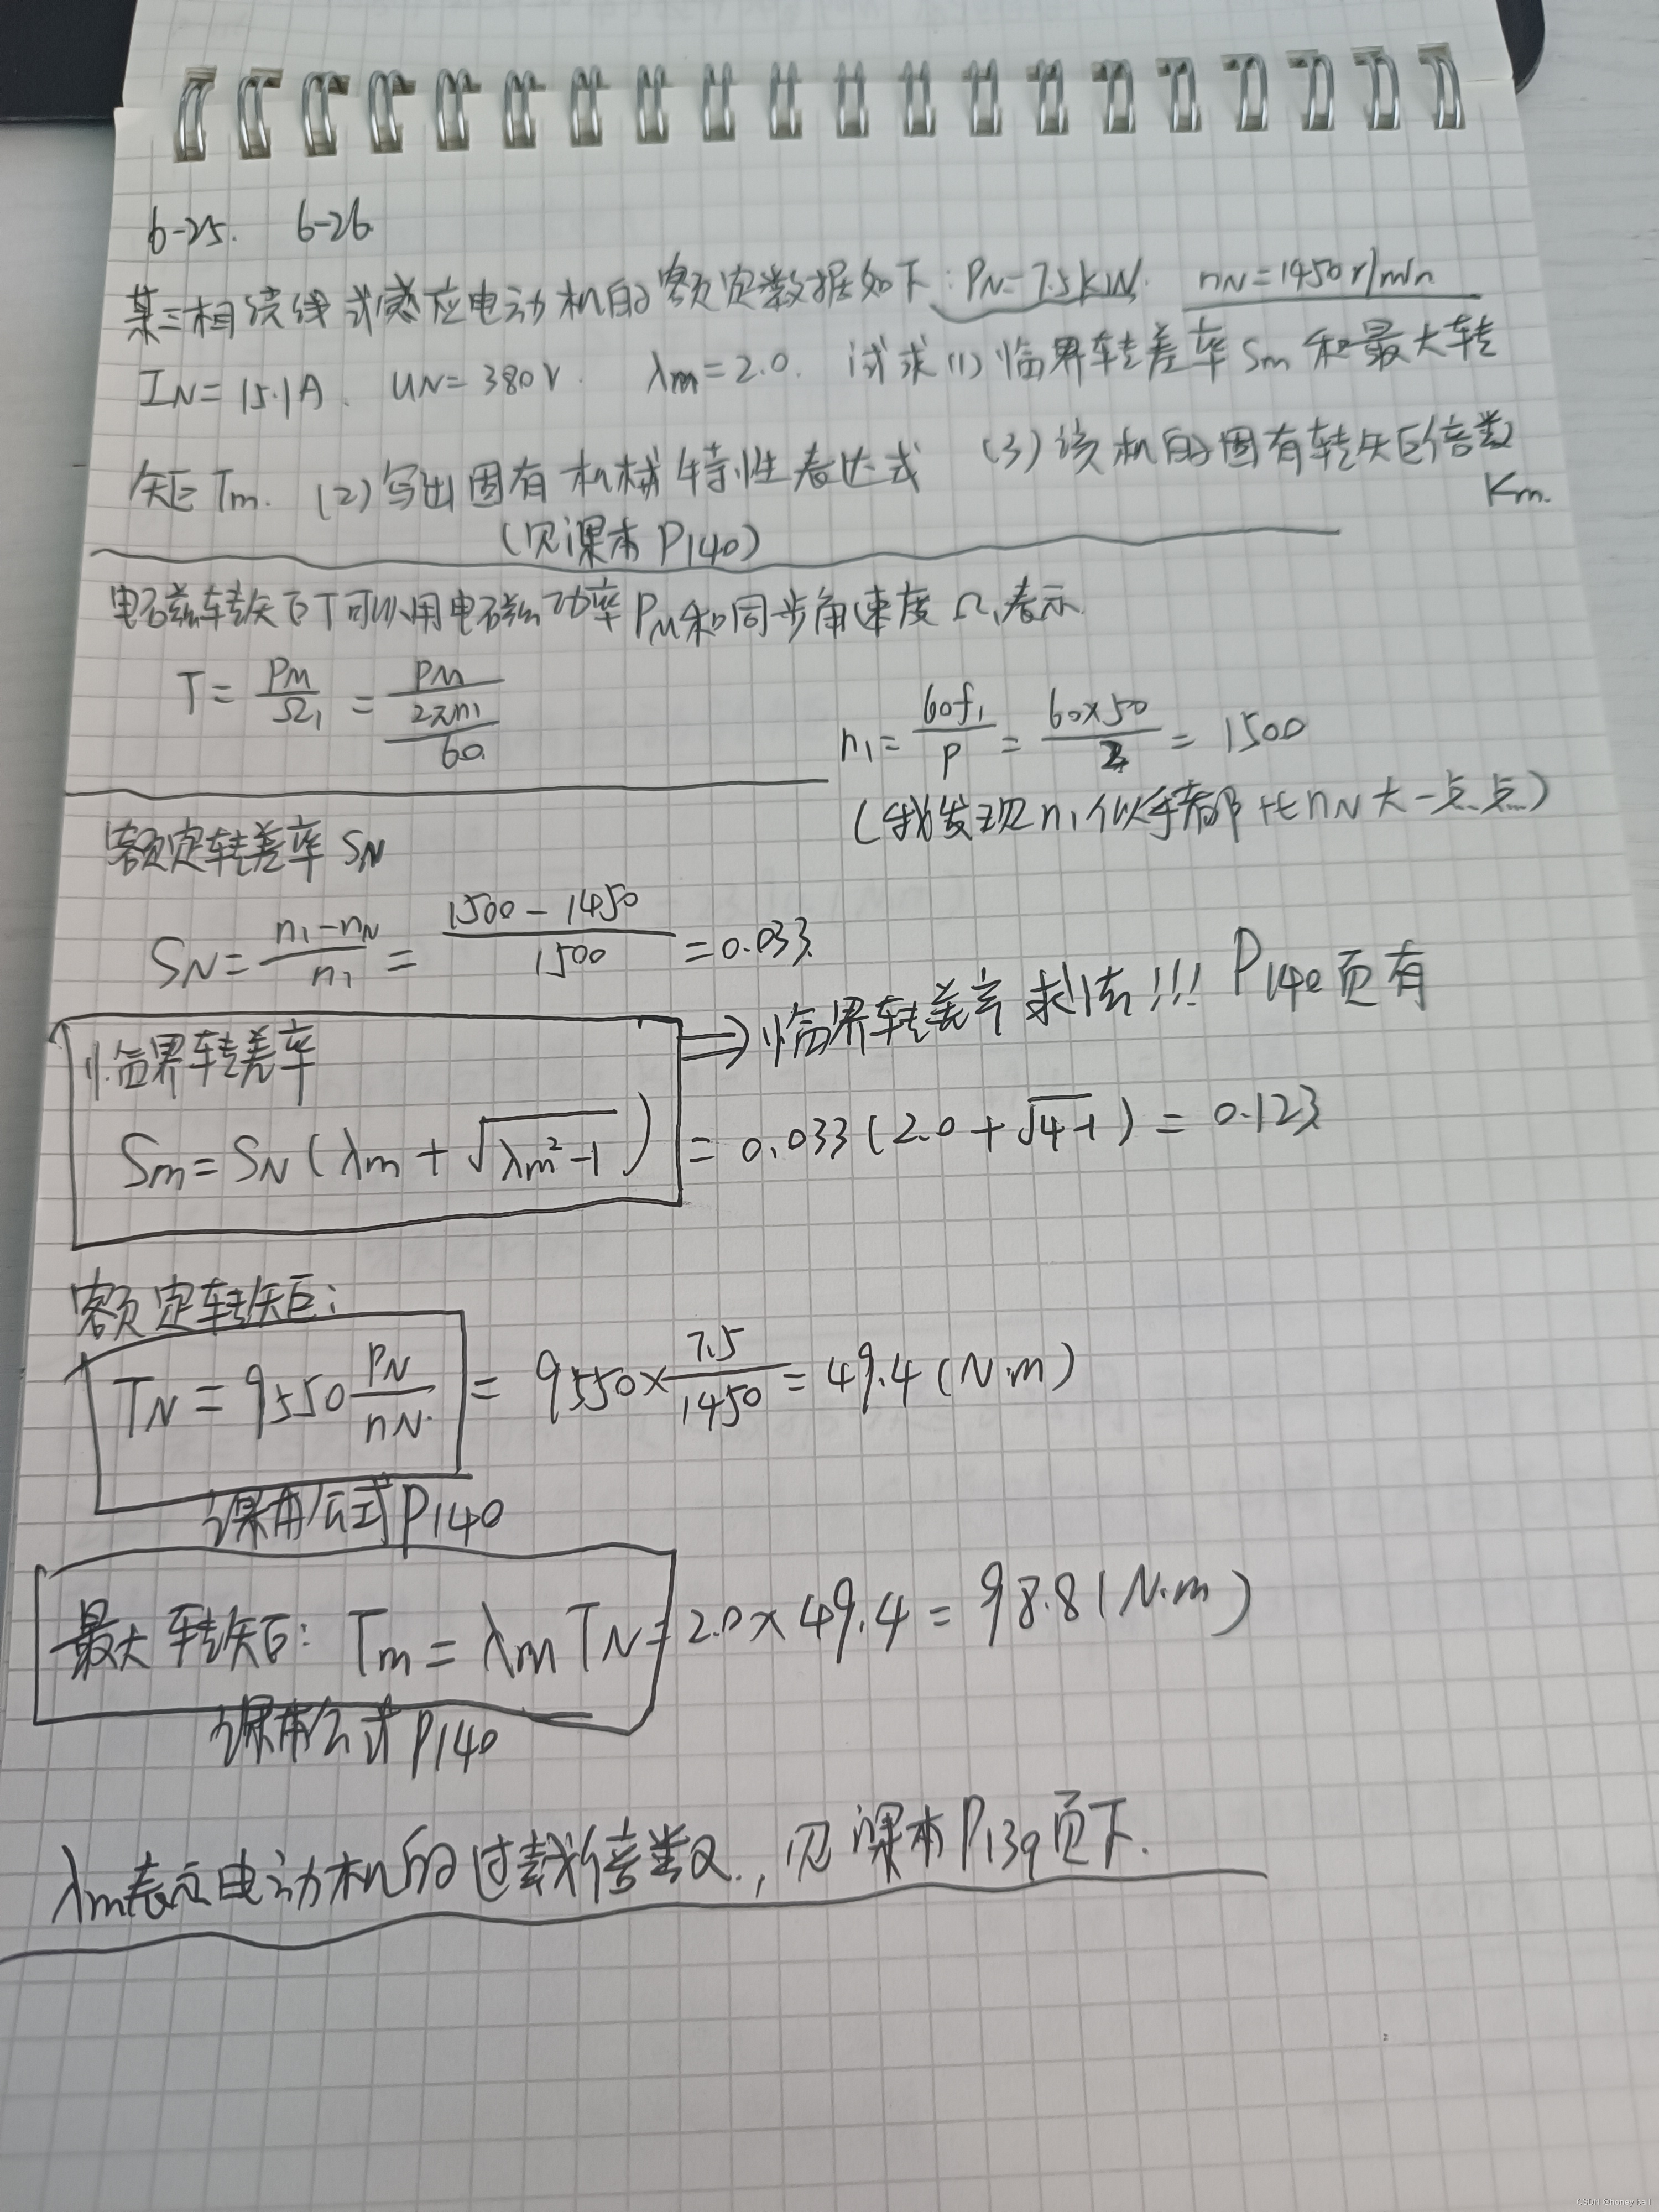 6-25. 6-26.
某三相绕线式感应电动机的额定数据如下: PN=7.5kW. nN=1450r/min
IN=15.1A. UN=380V. λm=2.0. 试求(1)临界转差率Sm和最大转
矩Tm. (2)写出固有机械特性表达式 (3)该机的固有转矩倍数
Km.
(见课本P140)
电磁转矩T可以用电磁功率PM和同步角速度Ω1表示.
T=PM/Ω1=PM/(2πn1/60)
n1=60f1/P=60×50/2=1500
(我发现n1似乎都比nN大一点点)
额定转差率SN
SN=(n1-nN)/n1=(1500-1450)/1500=0.033
临界转差率 ⇒临界转差率求法!!! P140页有
Sm=SN(λm+√(λm²-1))=0.033(2.0+√(4-1))=0.123
额定转矩:
TN=9550PN/nN=9550×7.5/1450=49.4(N·m)
课本公式P140
最大转矩: Tm=λmTN=2.0×49.4=98.8(N·m)
课本公式P140
λm表示电动机的过载倍数., 见课本P139页下.
CSDN @honey ball